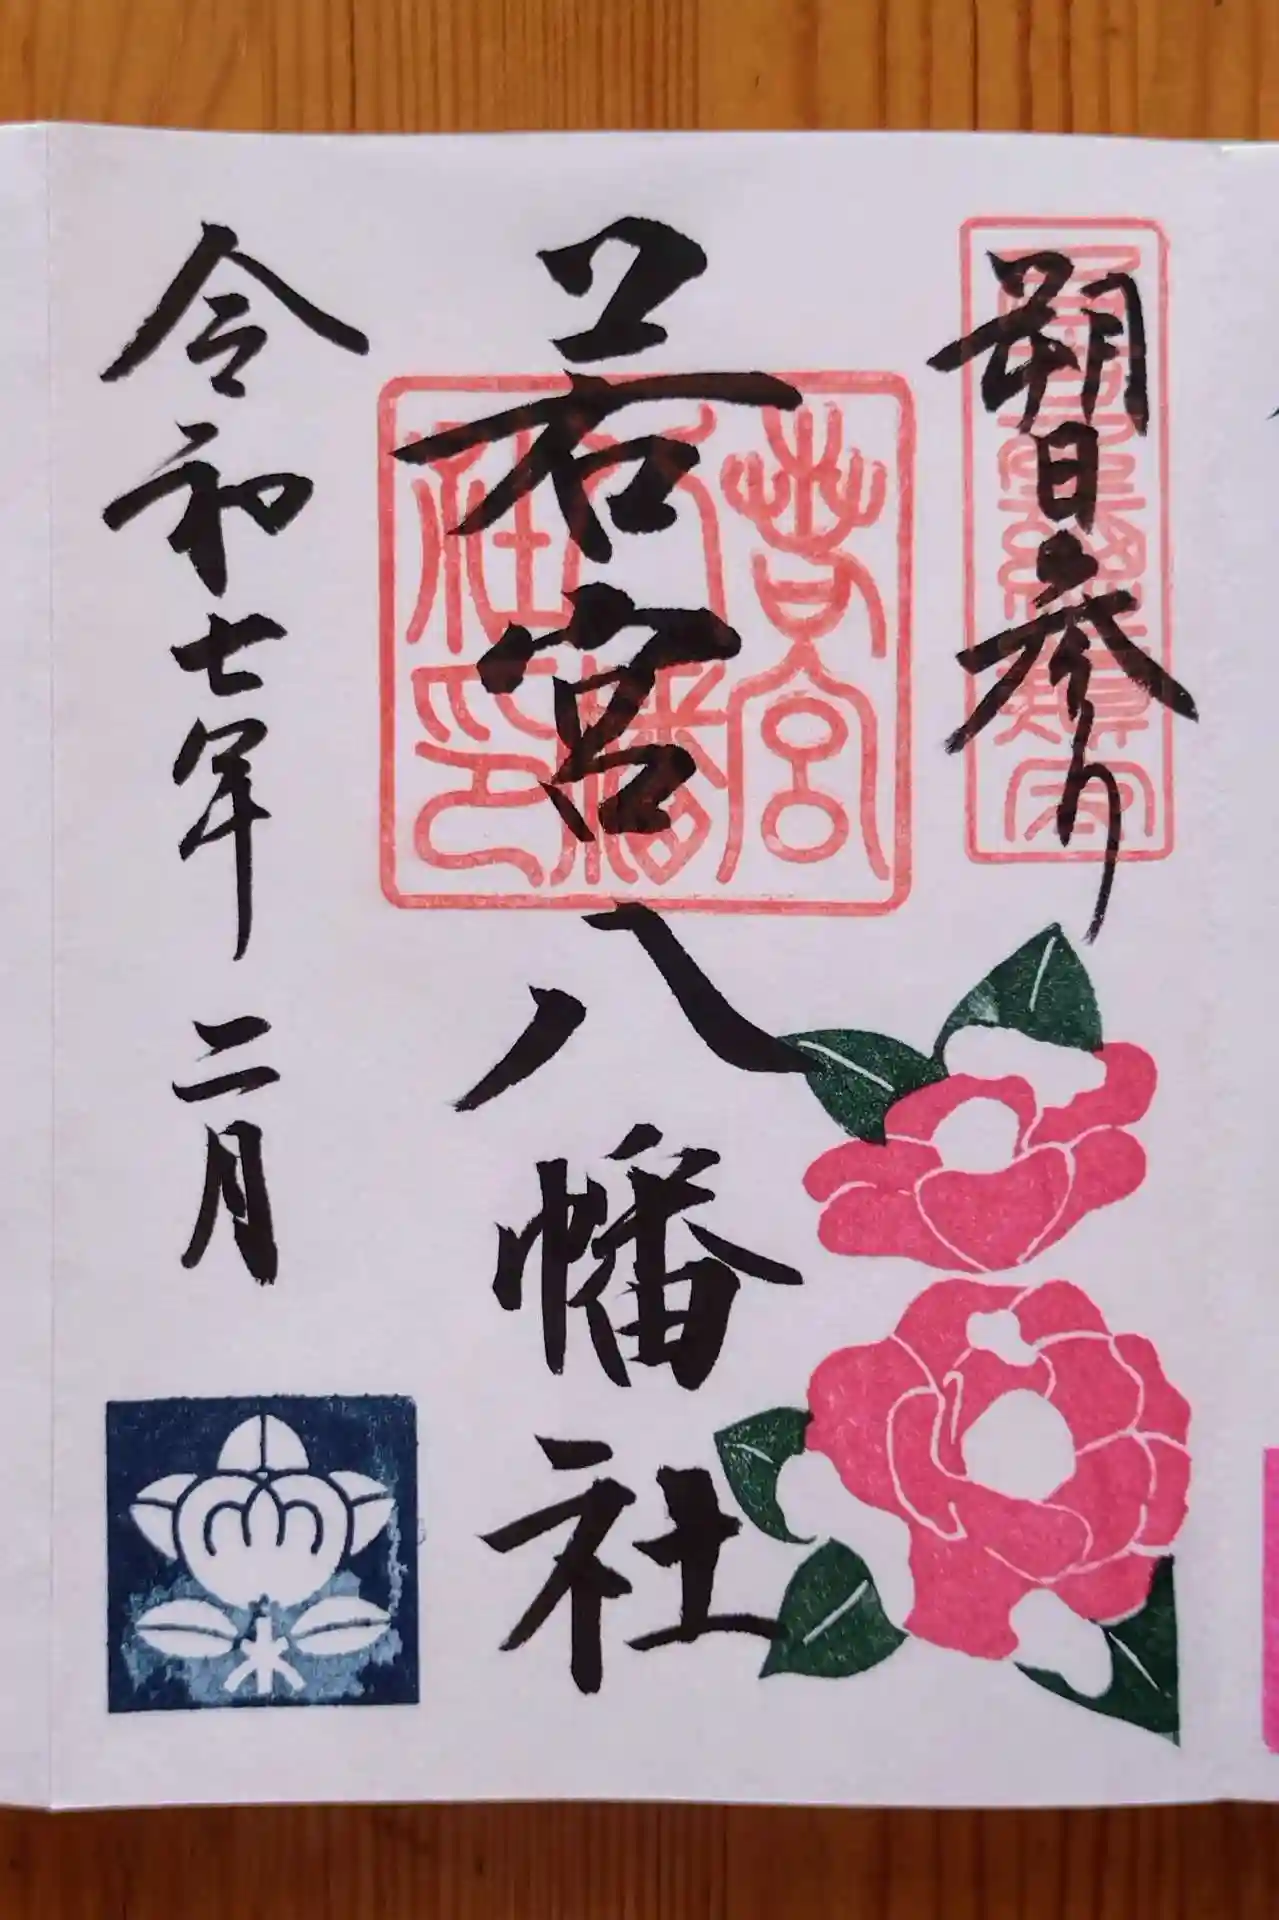 朔日参り
若宮八幡社
若宮
八幡
社印
令和七年二月